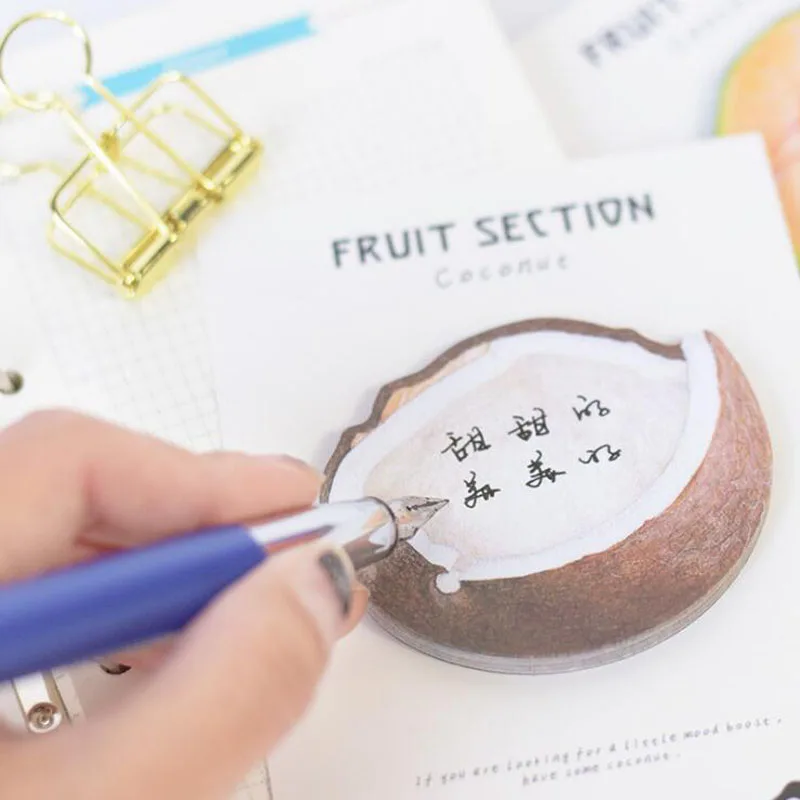 FRUIT
FRUIT SECTION
Coconut
甜甜的
美美的
If you are looking for a little mood boost,
have some coconut.